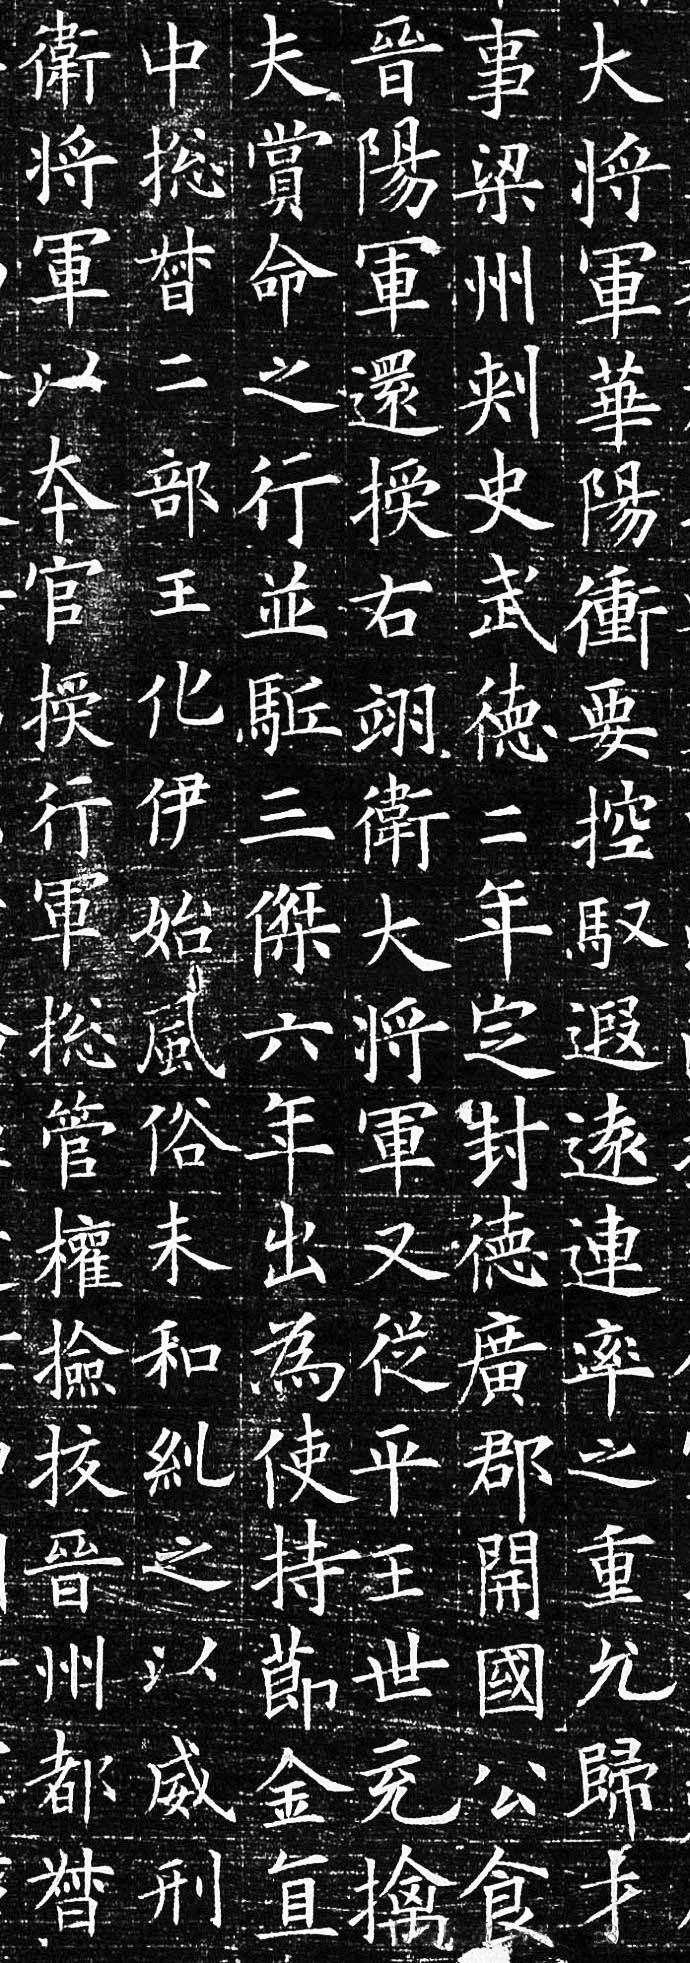 大将軍華陽衝要控馭遐遠連率之重允歸才
事梁州刾史武徳二年定封徳廣郡開國公食
晉陽軍還授右翊衛大将軍又従平王世充擒
夫賞命之行並駈三傑六年出為使持莭金直
中捴督二部王化伊始風俗未和糺之以威刑
衛将軍以夲官授行軍捴管權撿挍晉州都督